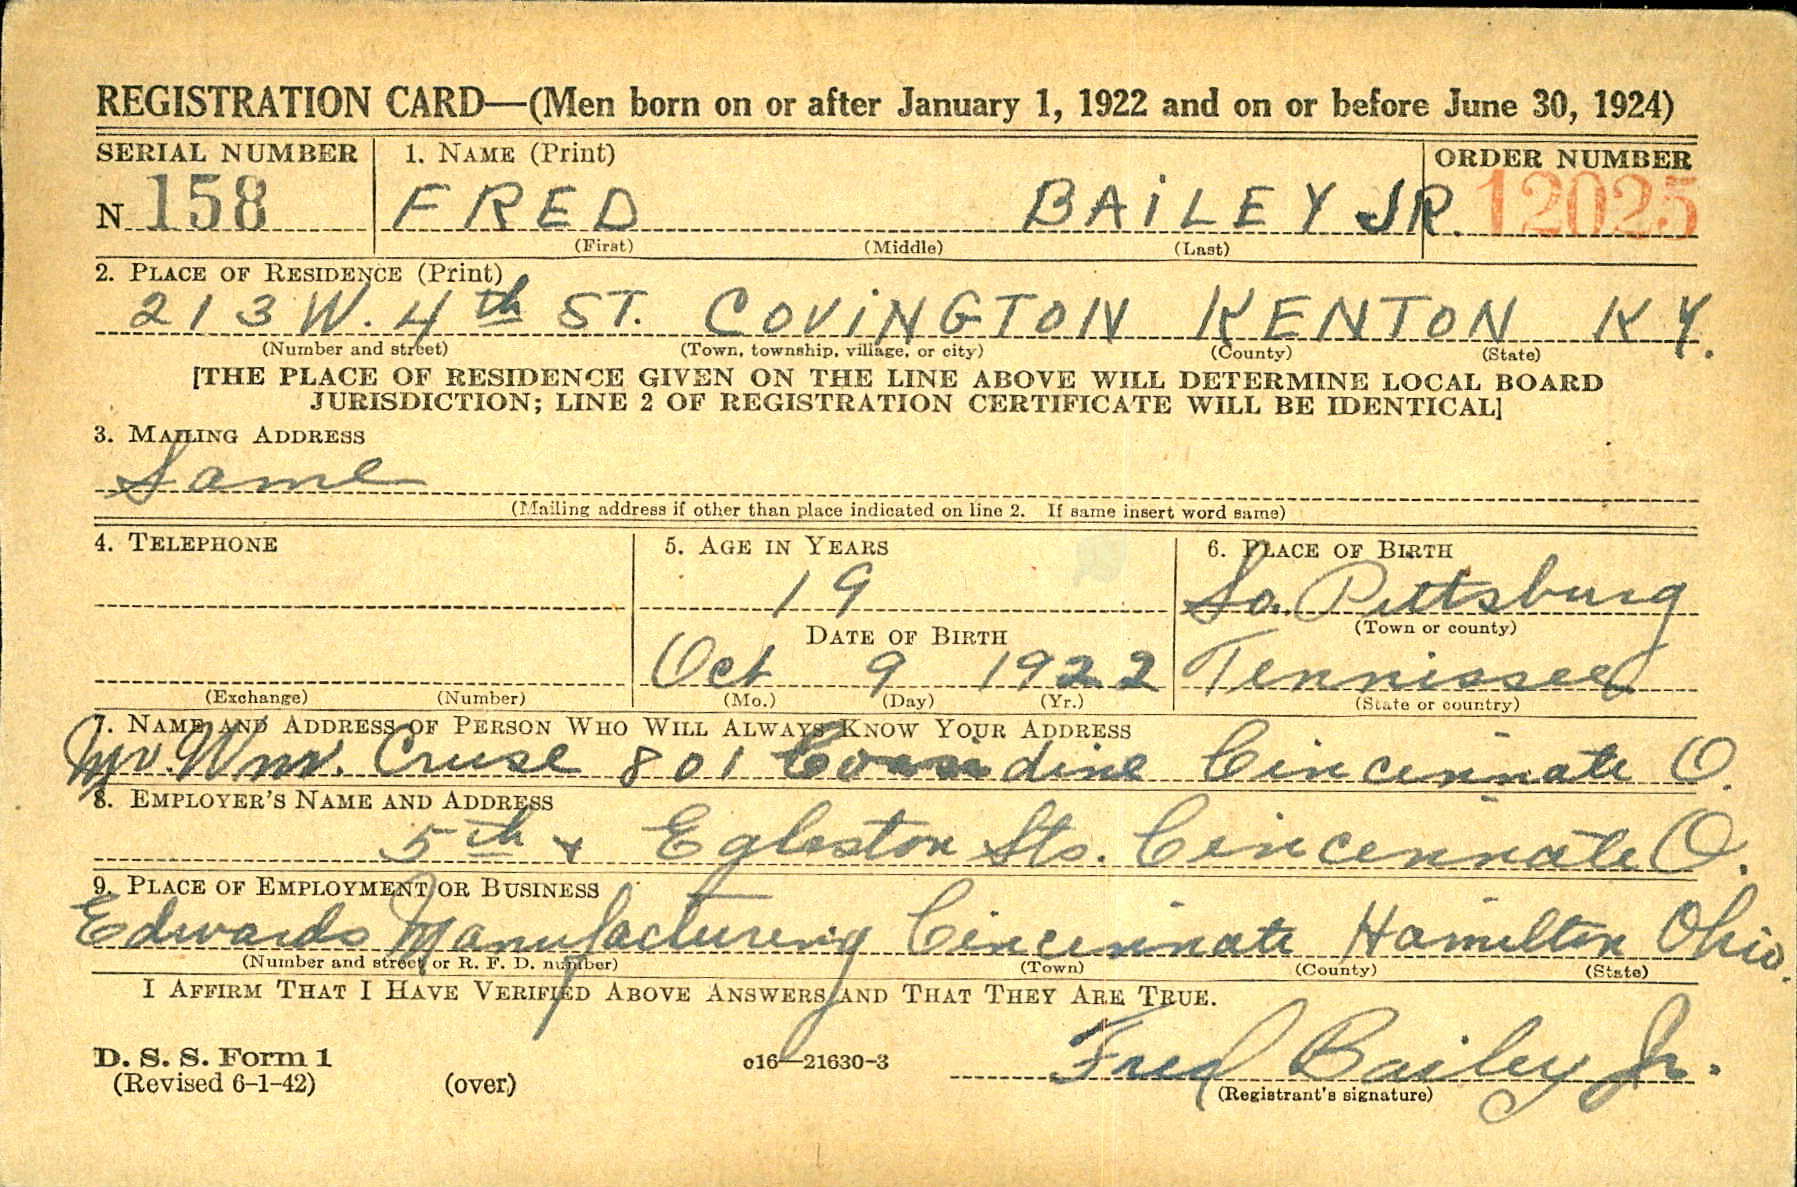 REGISTRATION CARD—(Men born on or after January 1, 1922 and on or before June 30, 1924)
SERIAL NUMBER 1. NAME (Print) ORDER NUMBER
N 158 FRED BAiLEY JR. 12025
(First) (Middle) (Last)
2. PLACE OF RESIDENCE (Print)
213 W. 4th ST. COViNGTON KENTON KY.
(Number and street) (Town, township, village, or city) (County) (State)
[THE PLACE OF RESIDENCE GIVEN ON THE LINE ABOVE WILL DETERMINE LOCAL BOARD
JURISDICTION; LINE 2 OF REGISTRATION CERTIFICATE WILL BE IDENTICAL]
3. MAILING ADDRESS
Same
(Mailing address if other than place indicated on line 2. If same insert word same)
4. TELEPHONE 5. AGE IN YEARS 6. PLACE OF BIRTH
19 So. Pittsburg
(Town or county)
DATE OF BIRTH
Oct 9 1922 Tennissee
(Exchange) (Number) (Mo.) (Day) (Yr.) (State or country)
7. NAME AND ADDRESS OF PERSON WHO WILL ALWAYS KNOW YOUR ADDRESS
Mr. Wm. Cruse 801 Cincinnate O.
8. EMPLOYER'S NAME AND ADDRESS
5th + Egleston Sts. Cincennate O.
9. PLACE OF EMPLOYMENT OR BUSINESS
Edwards Manufacturering Cincennate Hamilton Ohio.
(Number and street or R. F. D. number) (Town) (County) (State)
I AFFIRM THAT I HAVE VERIFIED ABOVE ANSWERS AND THAT THEY ARE TRUE.
D. S. S. Form 1
(Revised 6-1-42) (over) c16—21630-3 Fred Bailey Jr.
(Registrant's signature)